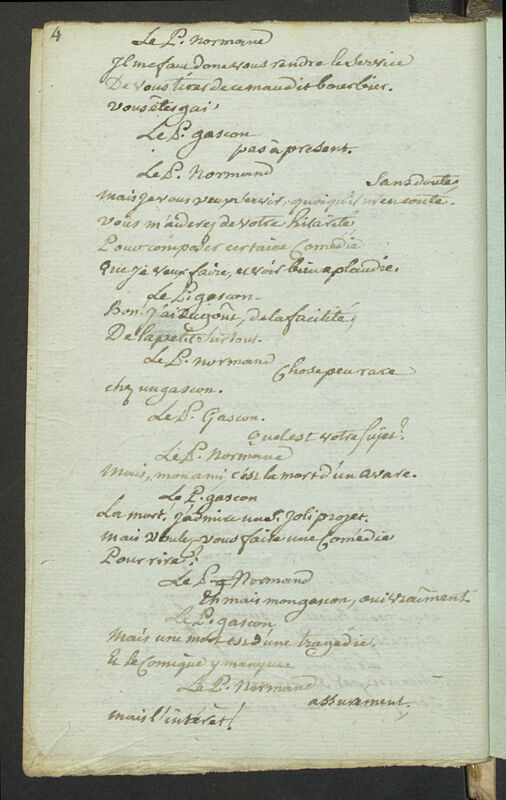 4
Le P. normand
Il me faut donc vous rendre le service
De vous tirer de ce maudit bourbier.
vous êtes gai,
Le P. gascon
pas à present.
Le P. Normand
Sans doute
mais je vous veux servir, quoiqu'il m'en coute.
vous m'aiderez de votre hilarité
Pour composer certaine Comédie
Que je veux faire, et voir bien aplaudie.
Le P. gascon
Bon! j'ai du goût, de la facilité,
De l'apetit surtout.
Le P. normand
Chose peu rare
chez un gascon.
Le P. Gascon.
Quel est votre sujet?
Le P. Normand
Mais, mon ami, c'est la mort d'un avare.
Le P. gascon
La mort! j'admire un si joli projet.
mais voulez-vous faire une Comédie
Pour rire?
Le P. Normand
Eh mais mon gascon, oui vraiment
Le P. gascon
Mais une mort est d'une tragédie,
Et le Comique y manque.
Le P. Normand
assurement,
mais l'intérêt!